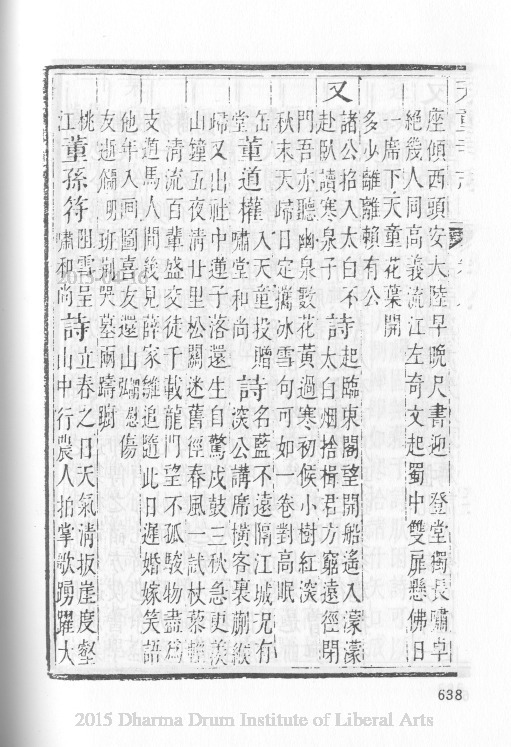 座傾西頭安大陸早晚尺書迎 登堂獨長嘯卓
絕幾人同高義流江左奇文起蜀中雙扉懸佛日
一席下天童花葉開
多少離離賴有公
又 諸公招入太白不 詩 起臨東閣望開船遙入濛濛
赴臥讀寒泉子 太白烟拾楫君方窮遠徑閉
門吾亦聽幽泉數花黃過寒初候小樹紅深
秋末天歸日定攜冰雪句可如一卷對高眠
董道權 入天童投贈 詩 名藍不遠隔江城況有
堂嘯堂和尚 滾公講席橫客裹蒯緱
歸又出社中蓮子落還生自驚戍鼓三秋急更羨
山鐘五夜清廿里松關迷舊徑春風一試杖藜輕
清流百輩盛交徒千載龍門望不孤駿物盡為
支道馬人間幾見薛家雛追隨此日遲婚嫁笑語
他年入畫圖喜友還山 慰傷
友逝 班荊哭墓兩躊
董孫符 阻雪呈 詩 立春之日天氣清扳崖度壑
江 嘯和尚 山中行農人拍掌歌踴躍大
638
2015 Dharma Drum Institute of Liberal Arts